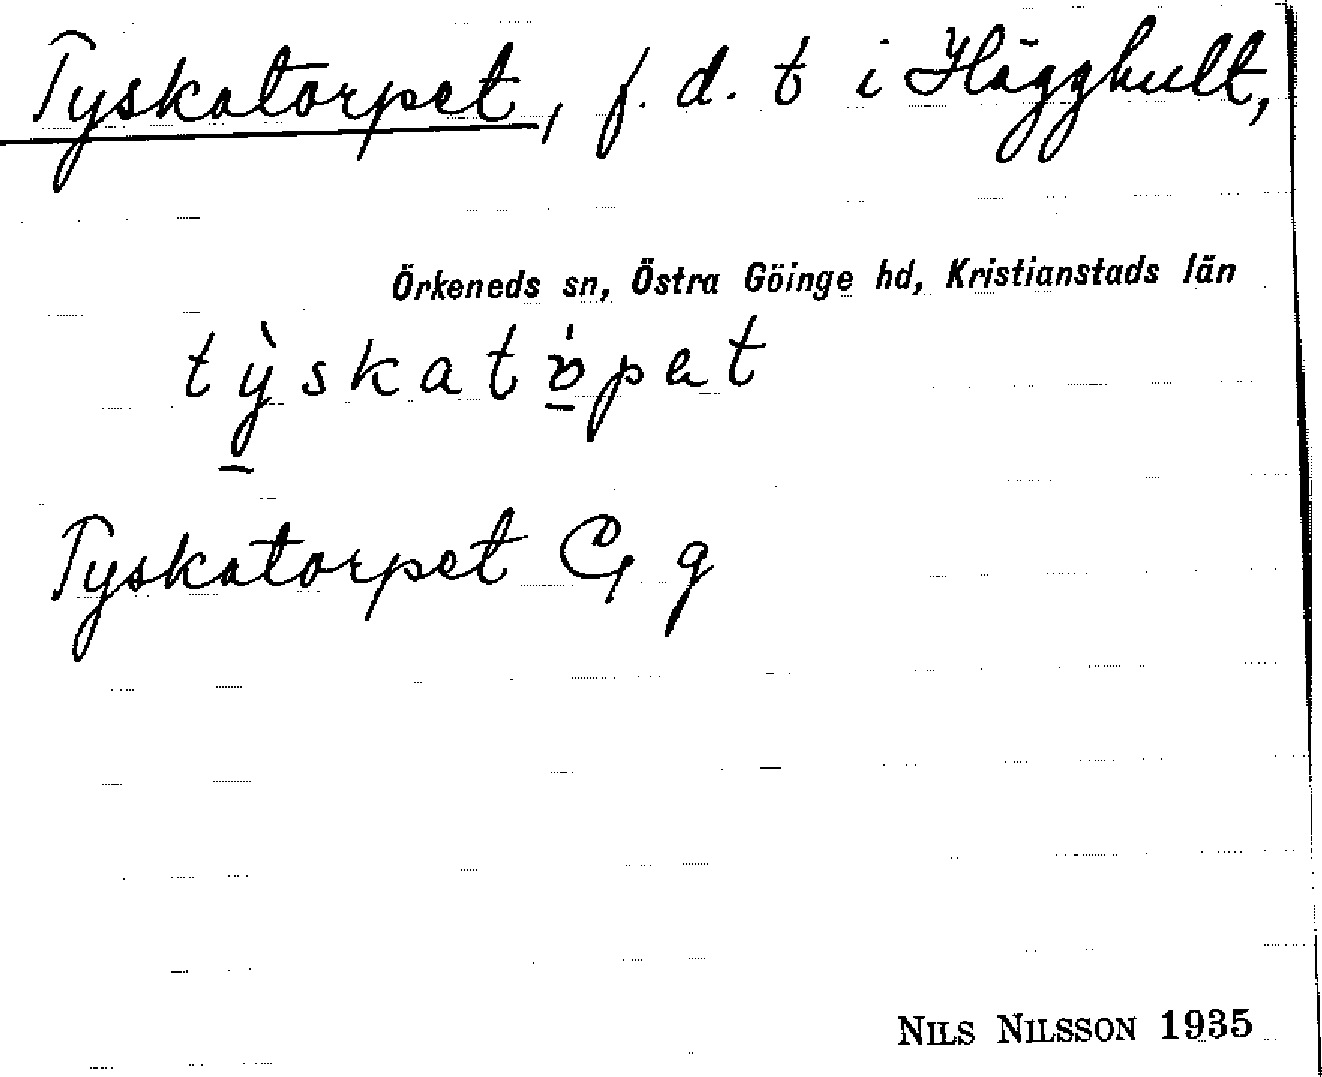 Tyskatorpet, f. d. t i Hägghult,
Örkeneds sn, Östra Göinge hd, Kristianstads län
Tyskatorpet
NILS NILSSON 1935